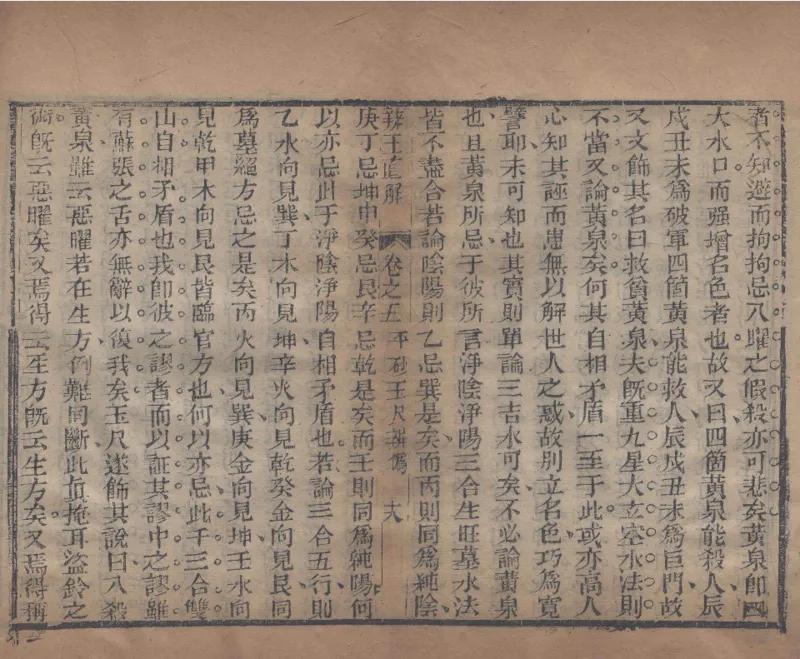 者不知避而拘拘忌八曜之假殺亦可悲矣黃泉卽四
大水口而强增名色者也故又曰四箇黃泉能殺人辰
戌丑未爲破軍四箇黃泉能救人辰戌丑未爲巨門故
又文飾其名曰救箇黃泉夫旣重九星大玄空水法則
不當又論黃泉矣何其自相矛盾一至于此或亦高人
心知其誣而患無以解世人之惑故別立名色巧爲寬
譬耶未可知也其實則單論三吉水可矣不必論黃泉
也且黃泉所忌于彼所言淨陰淨陽三合生旺墓水法
皆不盡合若論陰陽則乙忌巽是矣而丙則同爲純陰
辨正直解 卷之五 平砂玉尺辨僞
庚丁忌坤申癸忌艮辛忌乾是矣而壬則同爲純陽何
以亦忌此于淨陰淨陽自相矛盾也若論三合五行則
乙水向見巽丁木向見坤辛火向見乾癸金向見艮同
爲墓絕方忌之是矣丙火向見巽庚金向見坤壬水向
見乾甲木向見艮皆臨官方也何以亦忌此于三合雙
山自相矛盾也我卽彼之謬者而以証其謬中之謬雖
有蘇張之舌亦無辭以復我矣玉尺遂飾其說曰八殺
黃泉雖云惡曜若在生方例難同斷此眞掩耳盜鈴之
術旣云惡曜矣又焉得云生方旣云生方矣又焉得稱